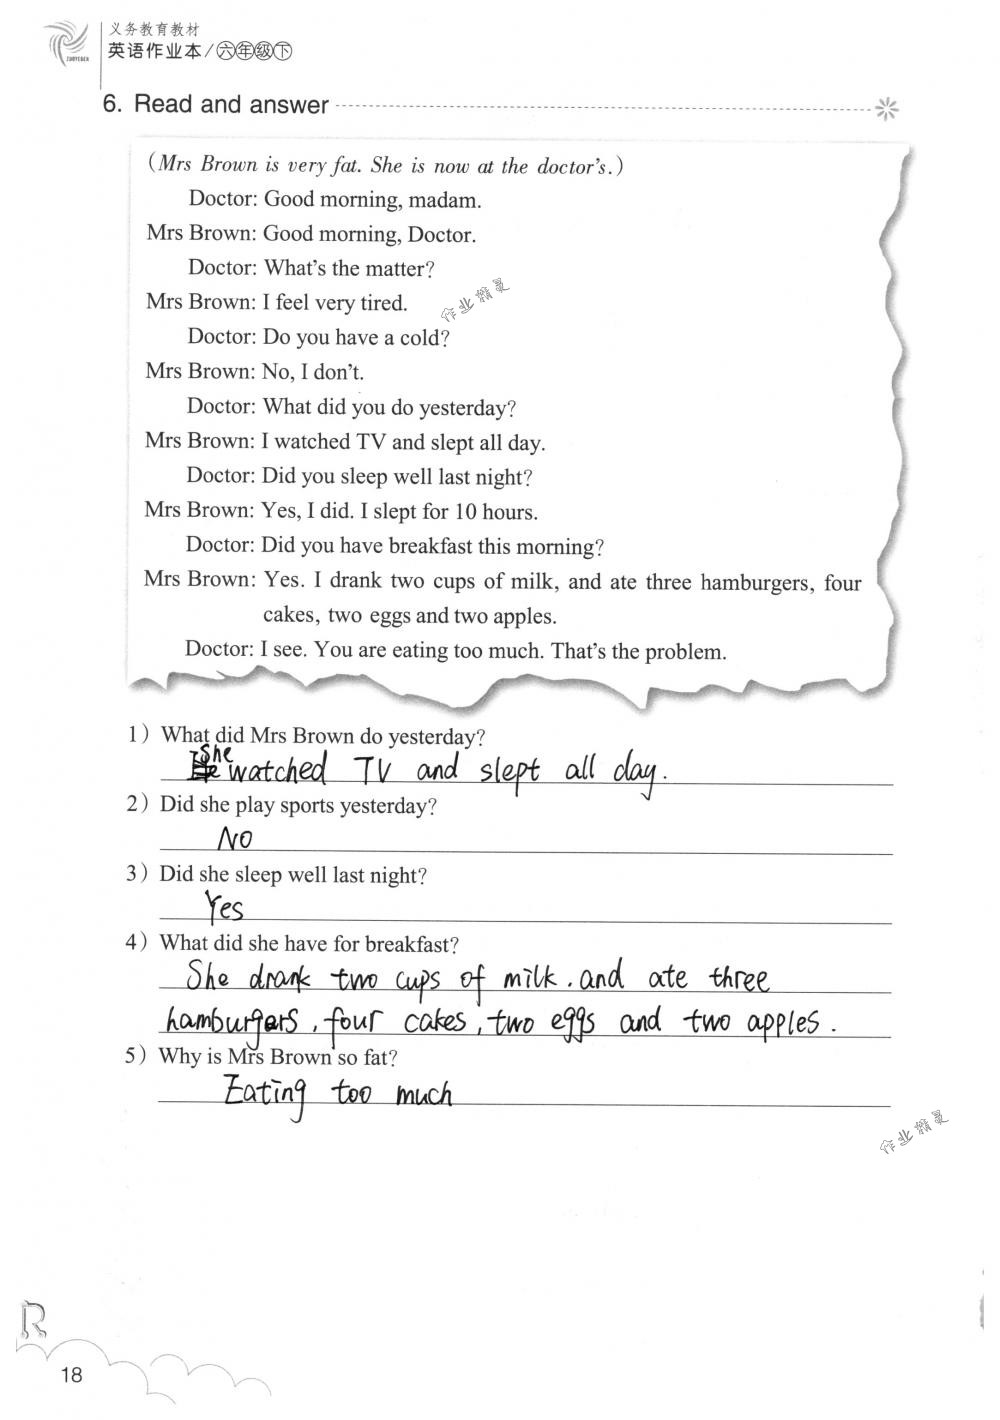 义务教育教材
英语作业本/六年级下
ZUOYEBEN
6. Read and answer
(Mrs Brown is very fat. She is now at the doctor's.)
Doctor: Good morning, madam.
Mrs Brown: Good morning, Doctor.
Doctor: What's the matter?
Mrs Brown: I feel very tired.
作业精灵
Doctor: Do you have a cold?
Mrs Brown: No, I don't.
Doctor: What did you do yesterday?
Mrs Brown: I watched TV and slept all day.
Doctor: Did you sleep well last night?
Mrs Brown: Yes, I did. I slept for 10 hours.
Doctor: Did you have breakfast this morning?
Mrs Brown: Yes. I drank two cups of milk, and ate three hamburgers, four
cakes, two eggs and two apples.
Doctor: I see. You are eating too much. That's the problem.
1) What did Mrs Brown do yesterday?
She watched TV and slept all day.
2) Did she play sports yesterday?
No
3) Did she sleep well last night?
Yes
4) What did she have for breakfast?
She drank two cups of milk, and ate three
hamburgers, four cakes, two eggs and two apples.
5) Why is Mrs Brown so fat?
Eating too much
作业精灵
R
18